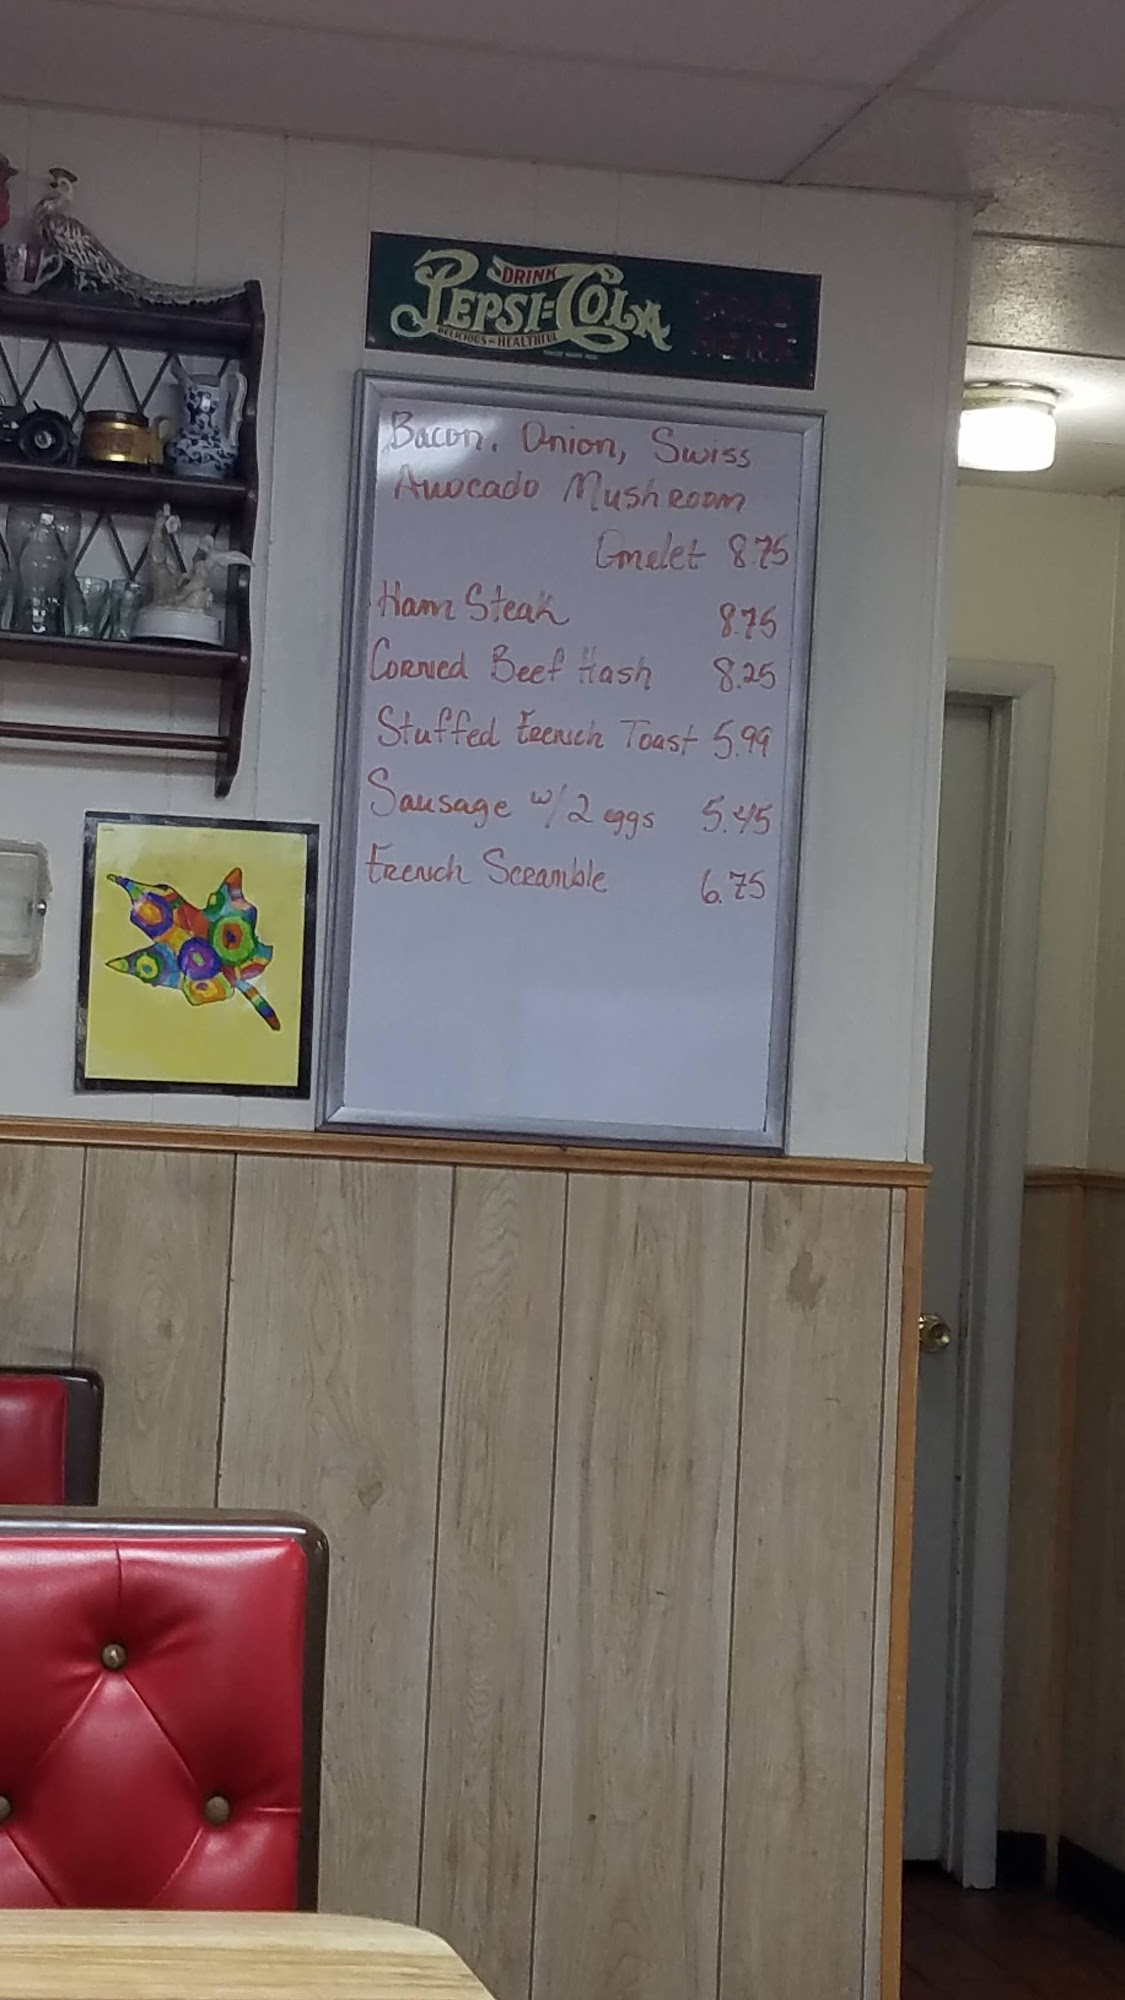 DRINK
PEPSI=COLA
DELICIOUS - HEALTHFUL
SOLD
HERE
Bacon, Onion, Swiss
Avocado Mushroom
Omelet 8.75
Ham Steak 8.75
Corned Beef Hash 8.25
Stuffed French Toast 5.99
Sausage w/2 eggs 5.45
French Scramble 6.75